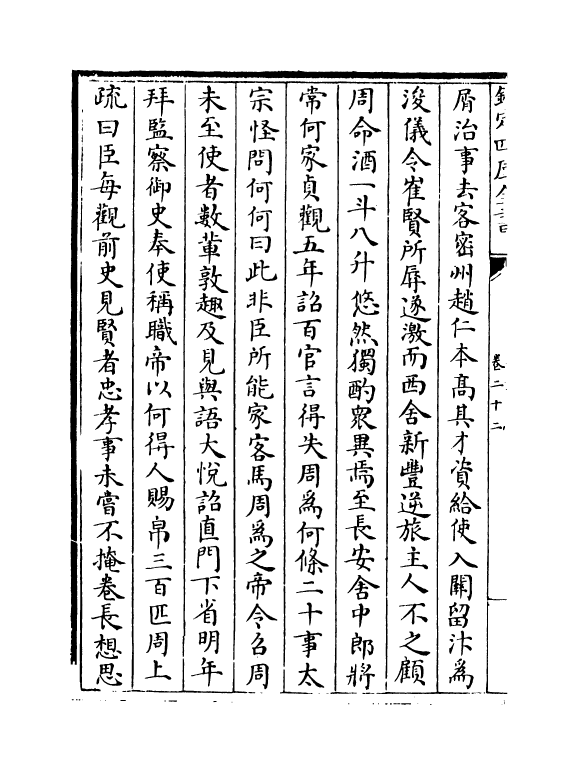 欽定四庫全書
卷二十二
屑治事去客密州趙仁本髙其才資給使入關留汴為
浚儀令崔賢所辱遂激而西舍新豐逆旅主人不之顧
周命酒一斗八升悠然獨酌衆異焉至長安舍中郎將
常何家貞觀五年詔百官言得失周為何條二十事太
宗怪問何何曰此非臣所能家客馬周為之帝令召周
未至使者數輩敦趣及見與語大悅詔直門下省明年
拜監察御史奉使稱職帝以何得人賜帛三百匹周上
疏曰臣每觀前史見賢者忠孝事未嘗不掩卷長想思